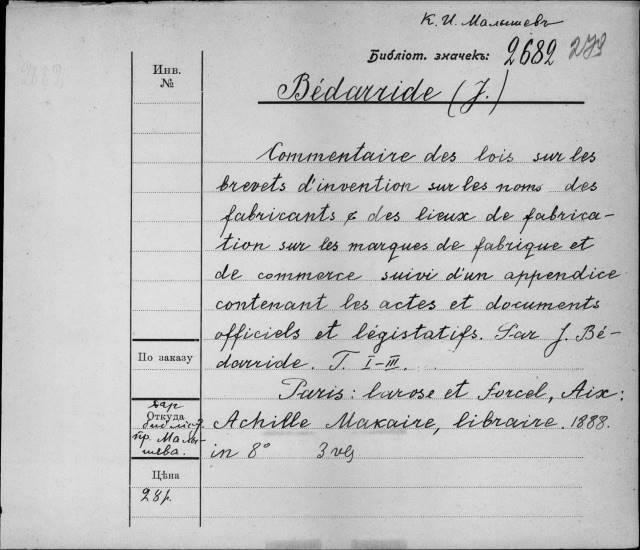 К. И. Малышевъ
Библіот. значекъ: 2682 279
Инв.
№
Bédarride (J.)
Commentaire des lois sur les
brevets d'invention sur les noms des
fabricants & des lieux de fabrica-
tion sur les marques de fabrique et
de commerce suivi d'un appendice
contenant les actes et documents
officiels et législatifs. Par J. Bé-
darride. T. I-III.
По заказу
Paris: Larose et Forcel, Aix:
Achille Makaire, libraire. 1888.
in 8° 3 vol
Дар
Откуда
библіот.
пр. Малы-
шева.
Цѣна
28р.